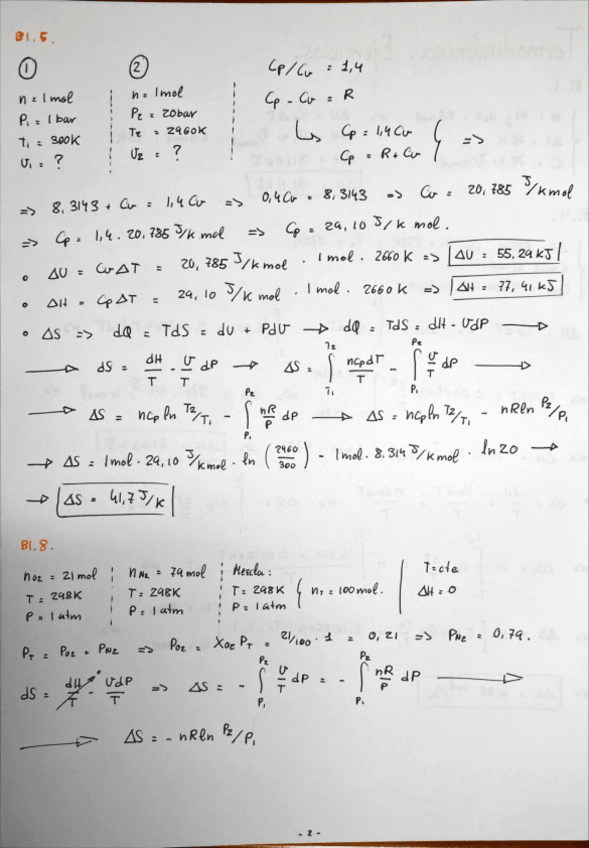 B1.5.
① ②
n = 1 mol
P₁ = 1 bar
T₁ = 300K
U₁ = ?
n = 1 mol
P₂ = 20 bar
T₂ = 2960K
U₂ = ?
Cp/Cv = 1,4
Cp - Cv = R
↳ Cp = 1,4 Cv
Cp = R + Cv } =>
=> 8,3143 + Cv = 1,4 Cv => 0,4 Cv = 8,3143 => Cv = 20,785 J/K mol
=> Cp = 1,4 · 20,785 J/K mol => Cp = 29,10 J/K mol.
• ΔU = CvΔT = 20,785 J/K mol · 1 mol · 2660 K => ΔU = 55,29 kJ
• ΔH = CpΔT = 29,10 J/K mol · 1 mol · 2660 K => ΔH = 77,41 kJ
• ΔS => dQ = TdS = dU + PdV → dQ = TdS = dH - VdP →
→ dS = dH/T - V/T dP → ΔS = ∫_{T₁}^{T₂} nCpdT/T - ∫_{P₁}^{P₂} V/T dP →
→ ΔS = nCp ln T₂/T₁ - ∫_{P₁}^{P₂} nR/P dP → ΔS = nCp ln T₂/T₁ - nR ln P₂/P₁
→ ΔS = 1 mol · 29,10 J/K mol · ln (2960/300) - 1 mol · 8,314 J/K mol · ln 20 →
→ ΔS = 41,7 J/K
B1.8.
nO₂ = 21 mol
T = 298K
P = 1 atm
nN₂ = 79 mol
T = 298K
P = 1 atm
Mezcla:
T = 298K
P = 1 atm } nT = 100 mol.
T = cte
ΔH = 0
PT = PO₂ + PN₂ => PO₂ = XO₂ PT = 21/100 · 1 = 0,21 => PN₂ = 0,79.
dS = dH/T - VdP/T => ΔS = - ∫_{P₁}^{P₂} V/T dP = - ∫_{P₁}^{P₂} nR/P dP →
→ ΔS = - nR ln P₂/P₁
- 2 -